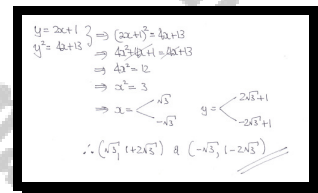 y = 2x+1
y² = 4x+13 } ⇒ (2x+1)² = 4x+13
⇒ 4x²+4x+1 = 4x+13
⇒ 4x² = 12
⇒ x² = 3
⇒ x = < √3 -√3 y = < 2√3+1 -2√3+1
∴ (√3, 1+2√3) & (-√3, 1-2√3)